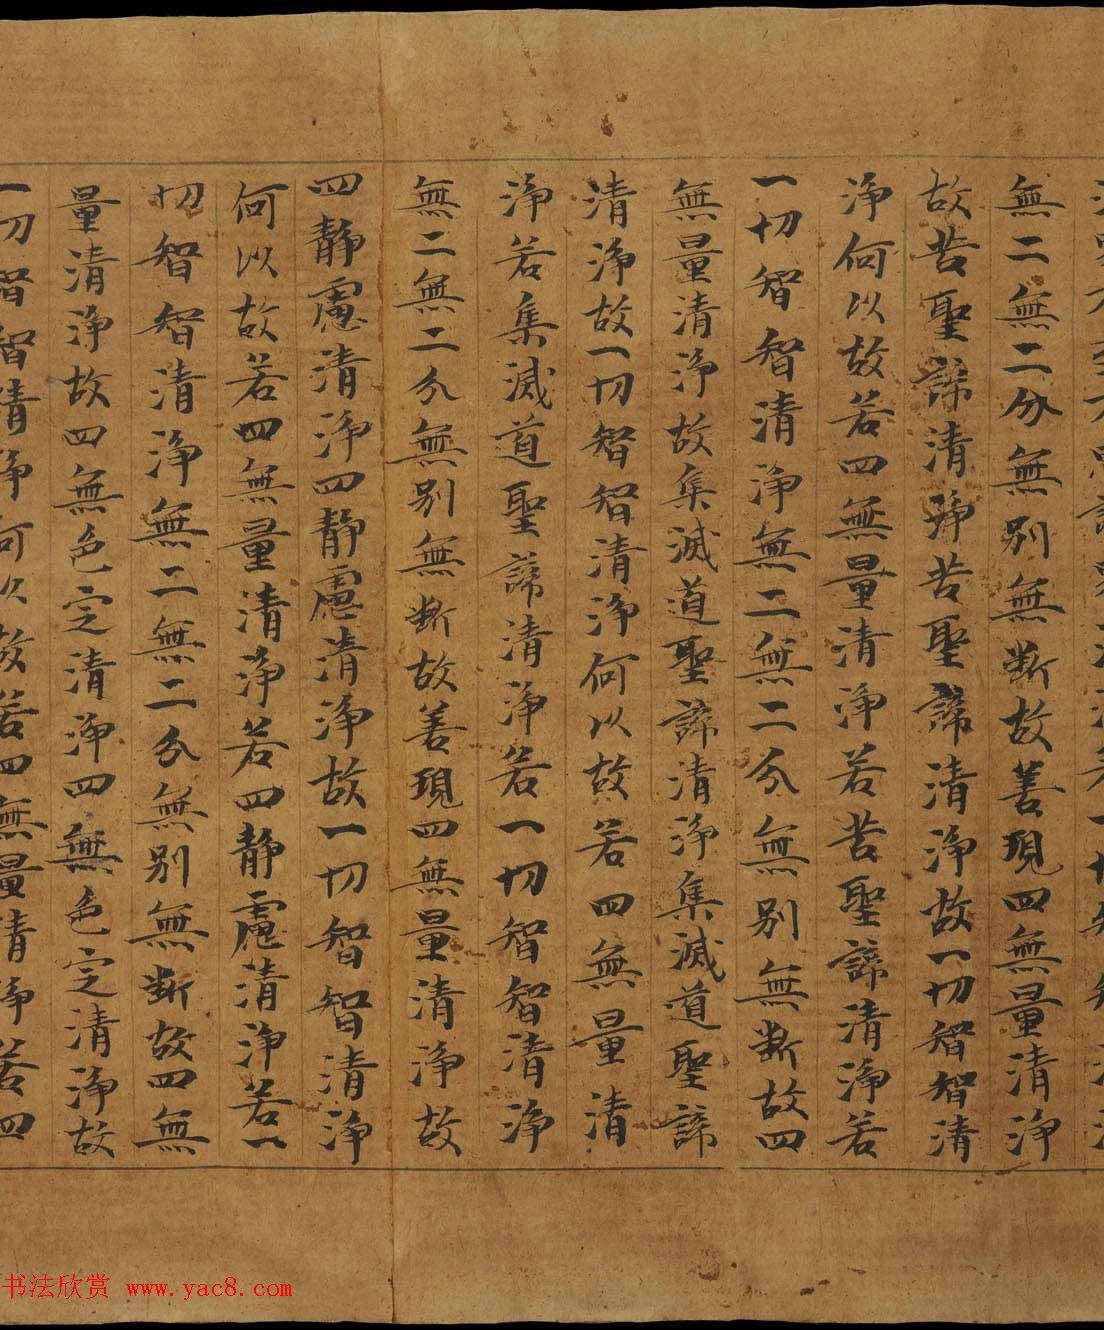 無二無二分無別無斷故善現四無量清淨
故苦聖諦清淨苦聖諦清淨故一切智智清
淨何以故若四無量清淨若苦聖諦清淨若
一切智智清淨無二無二分無別無斷故四
無量清淨故集滅道聖諦清淨集滅道聖諦
清淨故一切智智清淨何以故若四無量清
淨若集滅道聖諦清淨若一切智智清淨
無二無二分無別無斷故善現四無量清淨故
四靜慮清淨四靜慮清淨故一切智智清淨
何以故若四無量清淨若四靜慮清淨若一
切智智清淨無二無二分無別無斷故四無
量清淨故四無色定清淨四無色定清淨故
一切智智清淨何以故若四無量清淨若四
书法欣赏 www.yac8.com